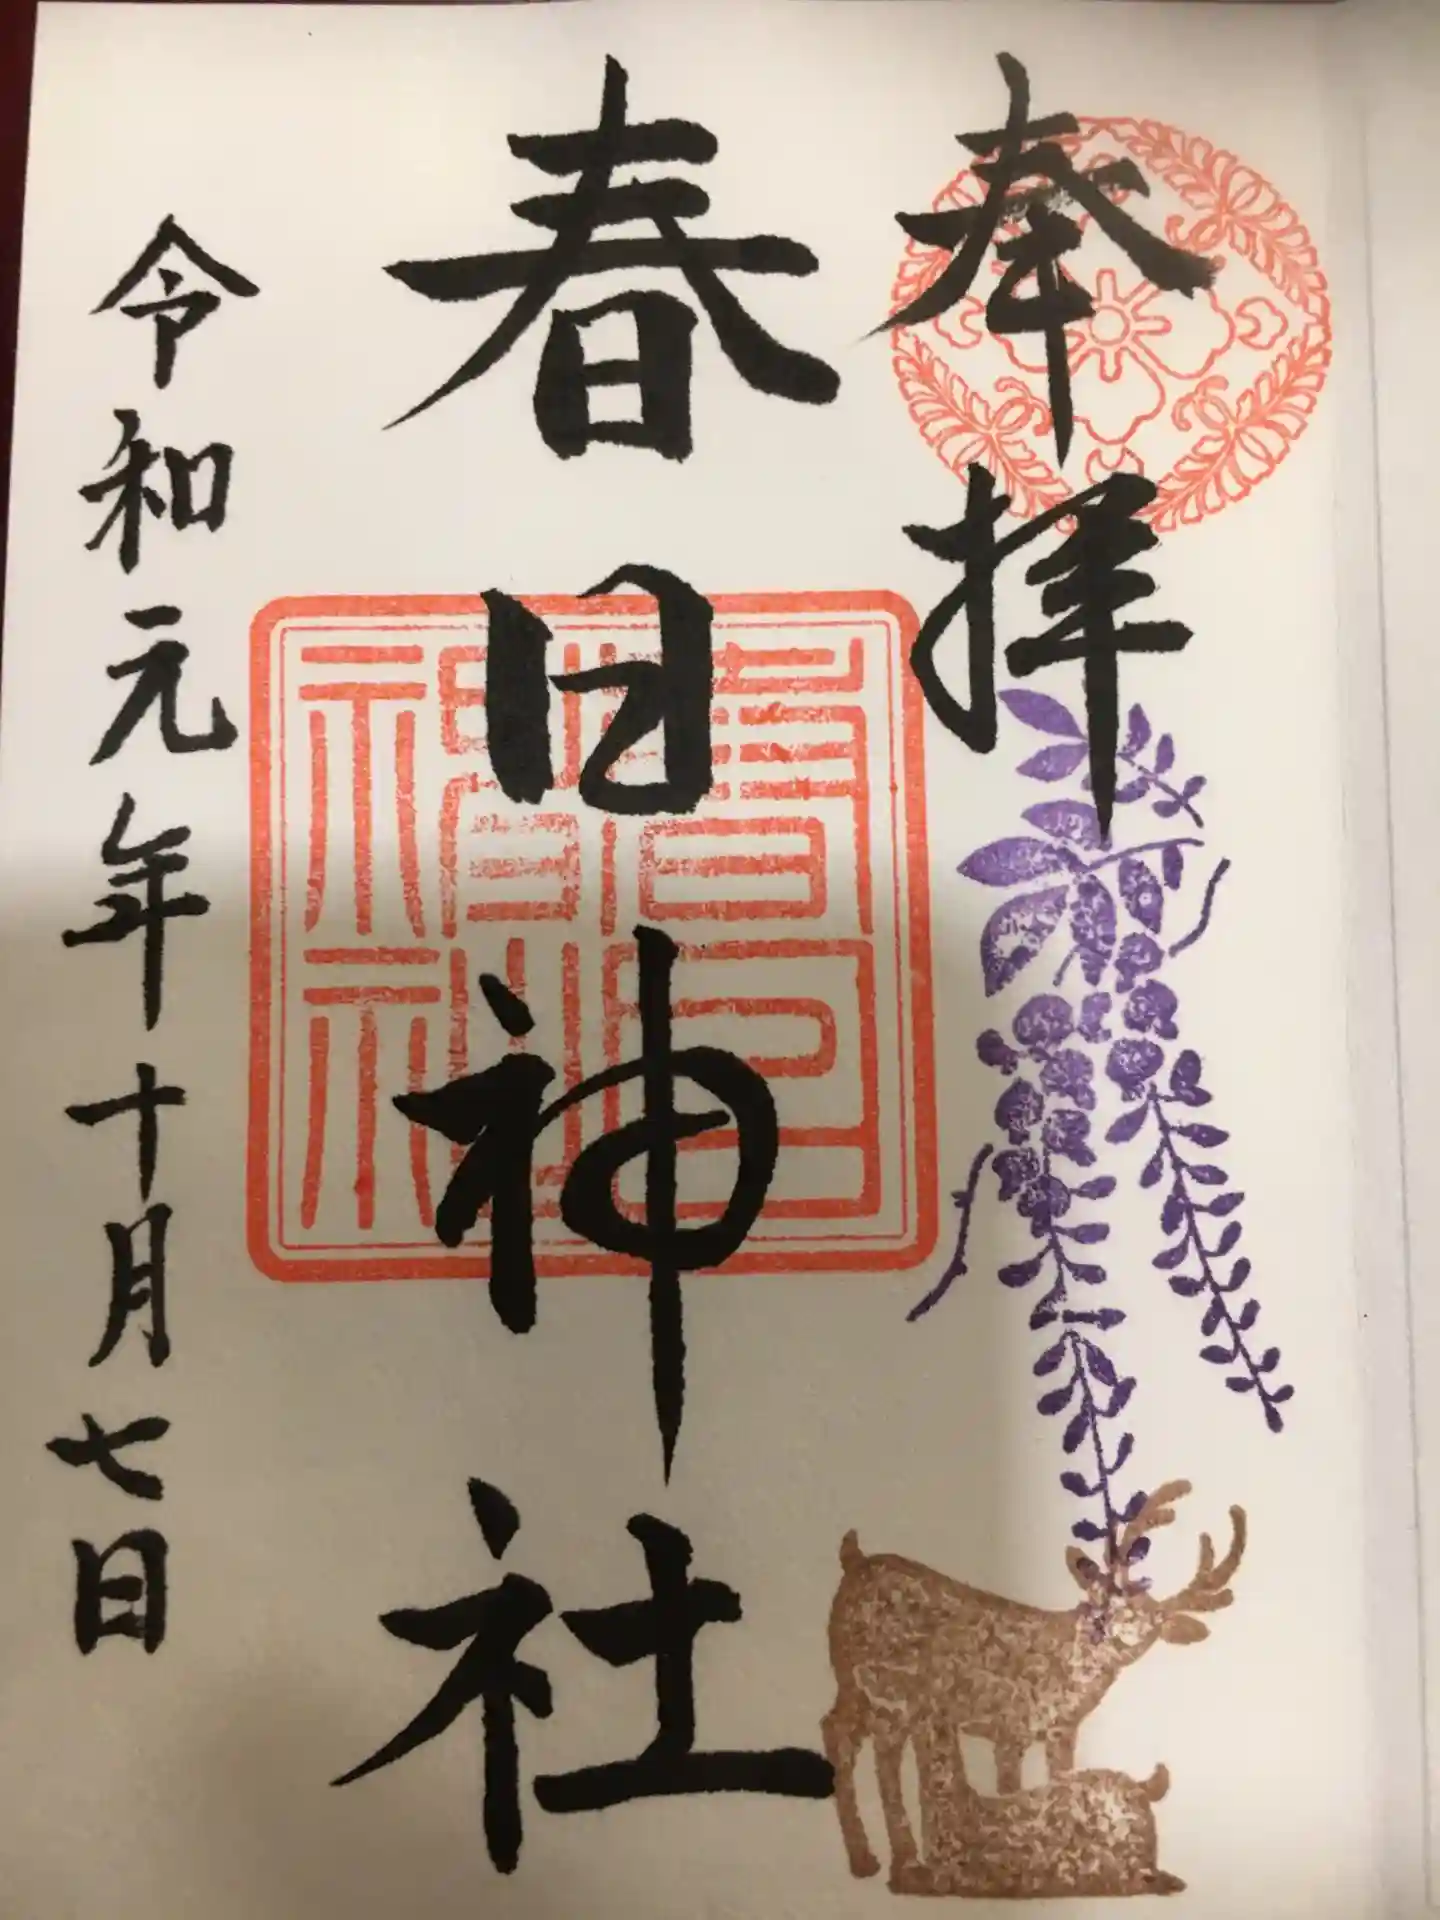 奉拝
春日神社
令和元年十月七日
春日神社